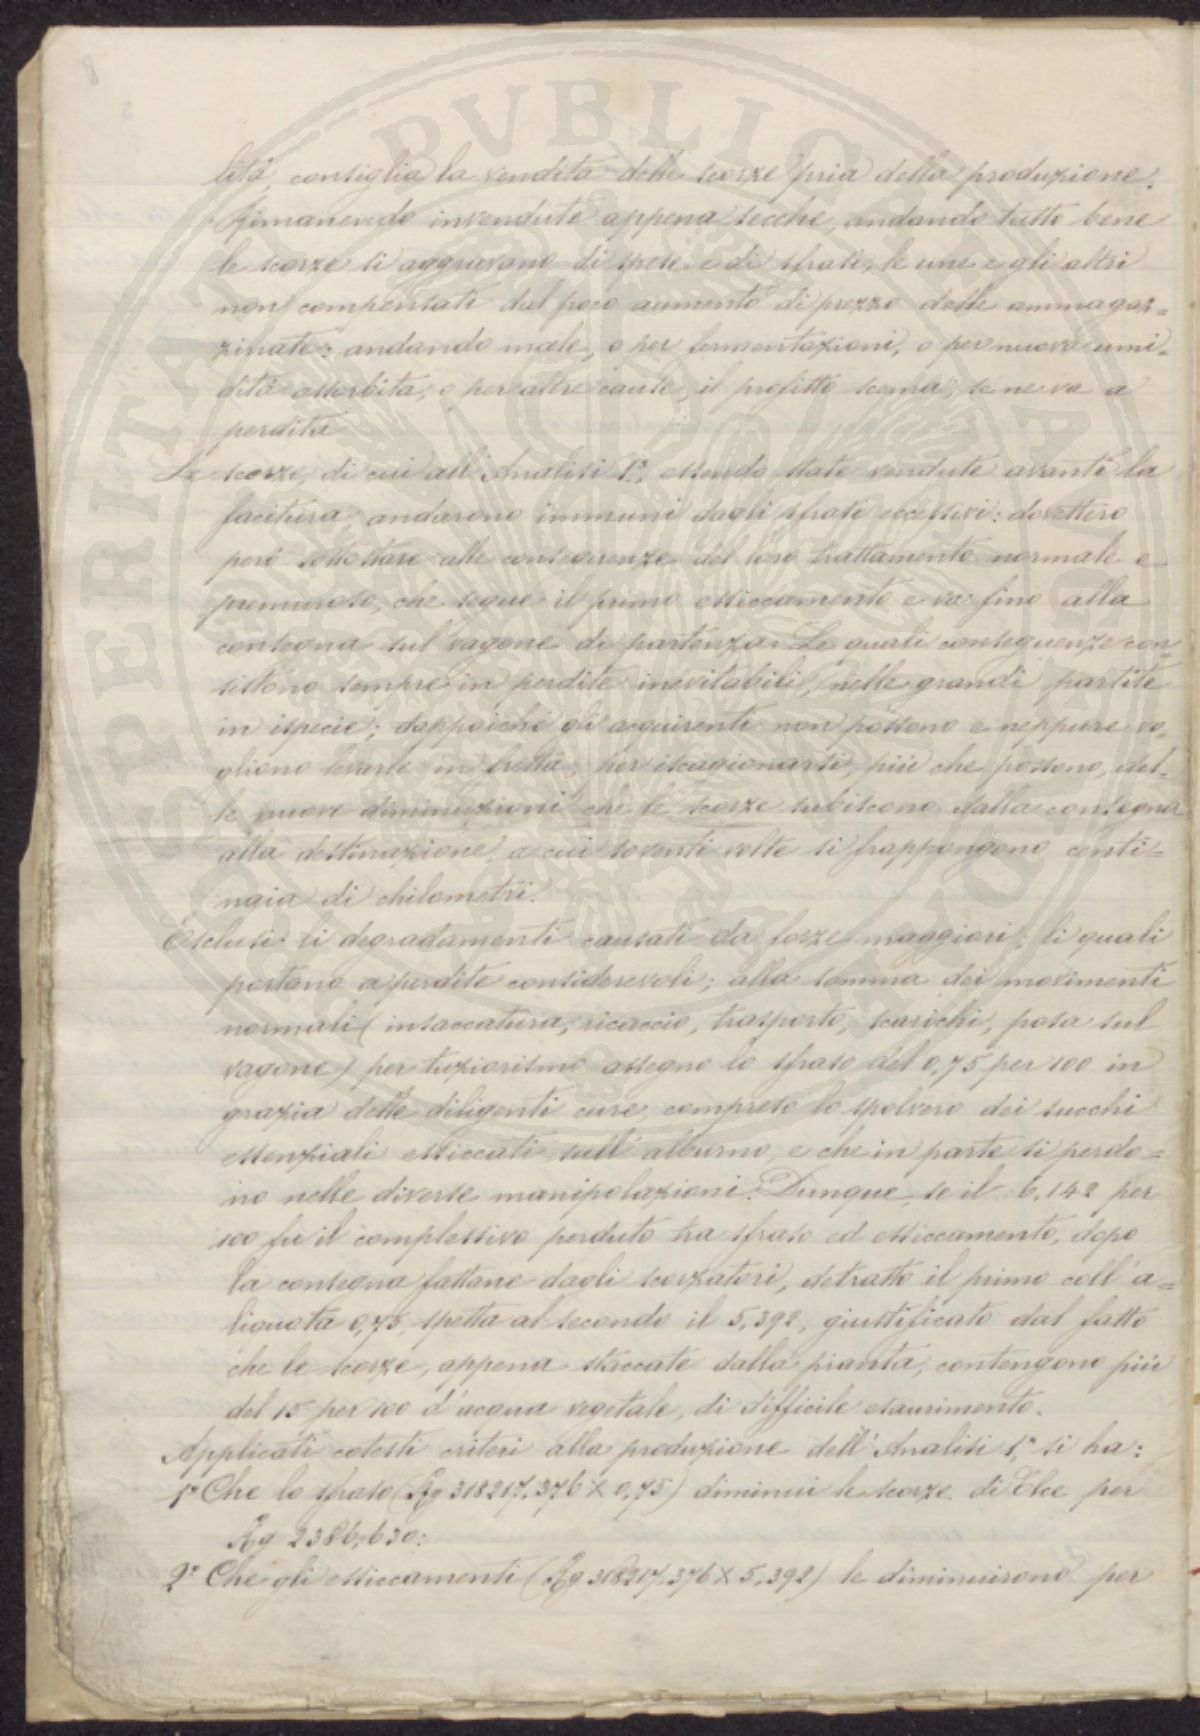 lità, consiglia la vendita delle scorze pria della produzione.
Rimanendo invendute appena secche, andando tutto bene
le scorze si aggravano di spese e di sfrasi, le une e gli altri
non compensati dal poco aumento di prezzo delle ammagaz=
zinate: andando male, o per fermentazioni, o per nuova umi=
dità assorbita, o per altre cause, il profitto scema, se ne va a
perdita
Le scorze, di cui all'Analisi 1ª, essendo state vendute avanti la
facitura, andarono immuni dagli sfrasi eccessivi: dovettero
però sottostare alle conseguenze del loro trattamento normale e
premuroso, che segue il primo essiccamento e va fino alla
consegna sul vagone di partenza. Le quali conseguenze con=
sistono sempre in perdite inevitabili, nelle grandi partite
in ispecie; dappoichè gli acquirenti non possono e neppure vo=
gliono levarle in fretta, per iscagionarsi, più che possono, del=
le nuove diminuzioni che le scorze subiscono dalla consegna
alla destinazione, a cui soventi volte si frappongono centi=
naia di chilometri.
Esclusi li degradamenti causati da forze maggiori, li quali
portano a perdite considerevoli; alla somma dei movimenti
normali (insaccatura, ricaccio, trasporto, scarichi, posa sul
vagone) per tuziorismo assegno lo sfraso del 0,75 per 100 in
grazia delle diligenti cure, compreso lo spolvero dei succhi
essenziali essiccati sull'alburno, e che in parte si perdo=
no nelle diverse manipolazioni. Dunque, se il 6,142 per
100 fu il complessivo perduto tra sfraso ed essiccamento, dopo
la consegna fattane dagli scorzatori, detratto il primo coll'a=
liquota 0,75, spetta al secondo il 5,392, giustificato dal fatto
che le scorze, appena staccate dalla pianta, contengono più
del 15 per 100 d'acqua vegetale, di difficile esaurimento.
Applicati cotesti criteri alla produzione dell'Analisi 1ª, si ha:
1º Che lo sfraso (Kg 318217,376 X 0,75) diminuì le scorze di Elce per
Kg 2386,630:
2º Che gli essiccamenti (Kg 318217,376 X 5,392) le diminuirono per